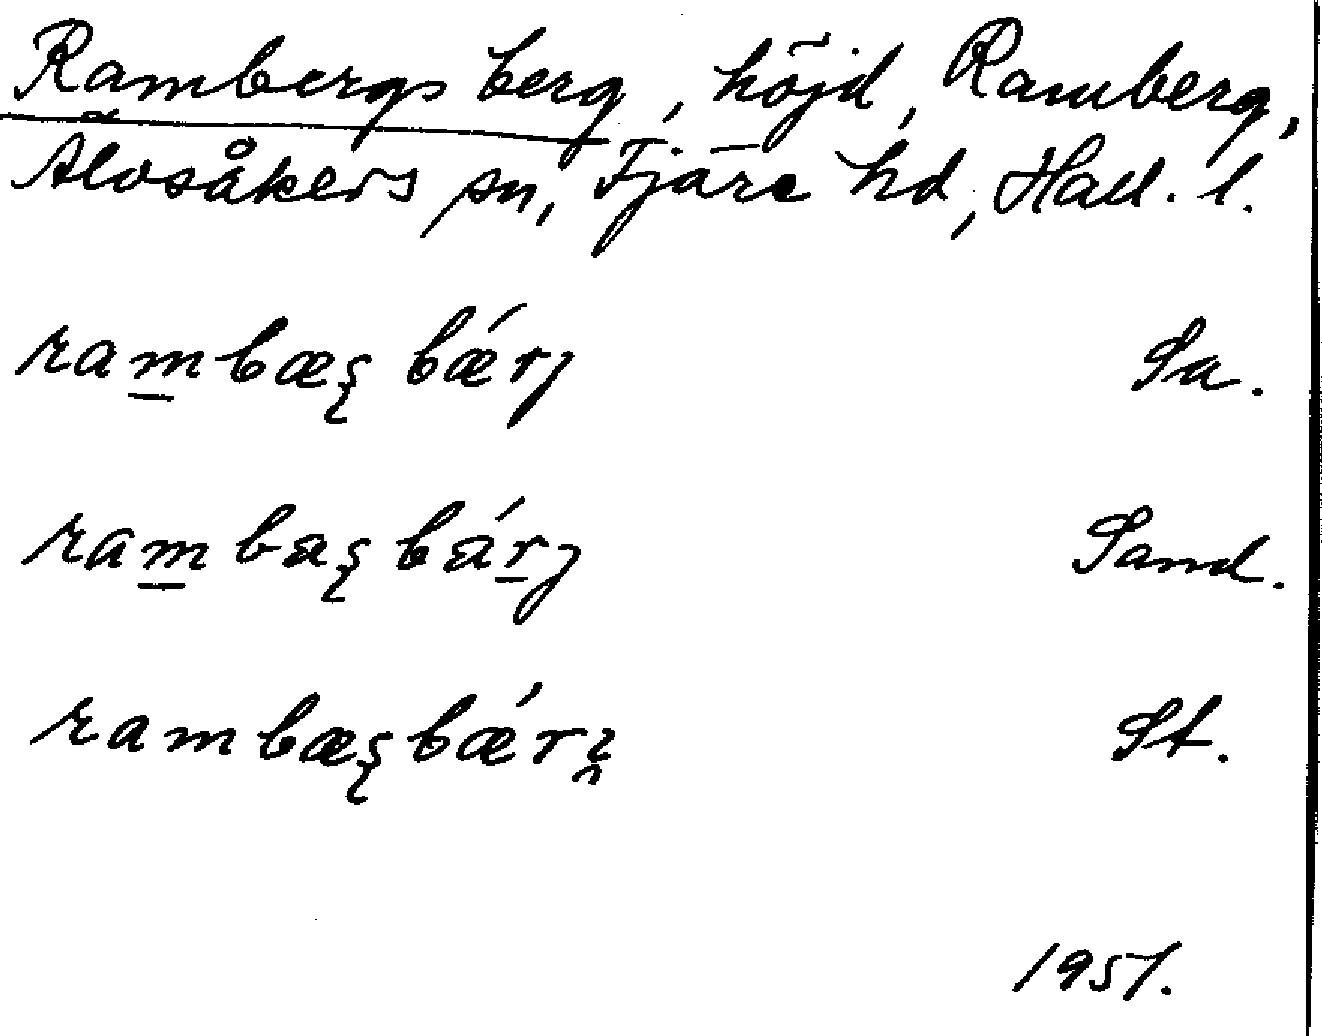 Rambergs berg, höjd, Ramberg,
Älvsåkers sn, Fjäre hd, Hall. l.
rambæʂ bǽrj Sa.
rambaʂbárj Sand.
rambæʂbǽri̯ St.
1951.